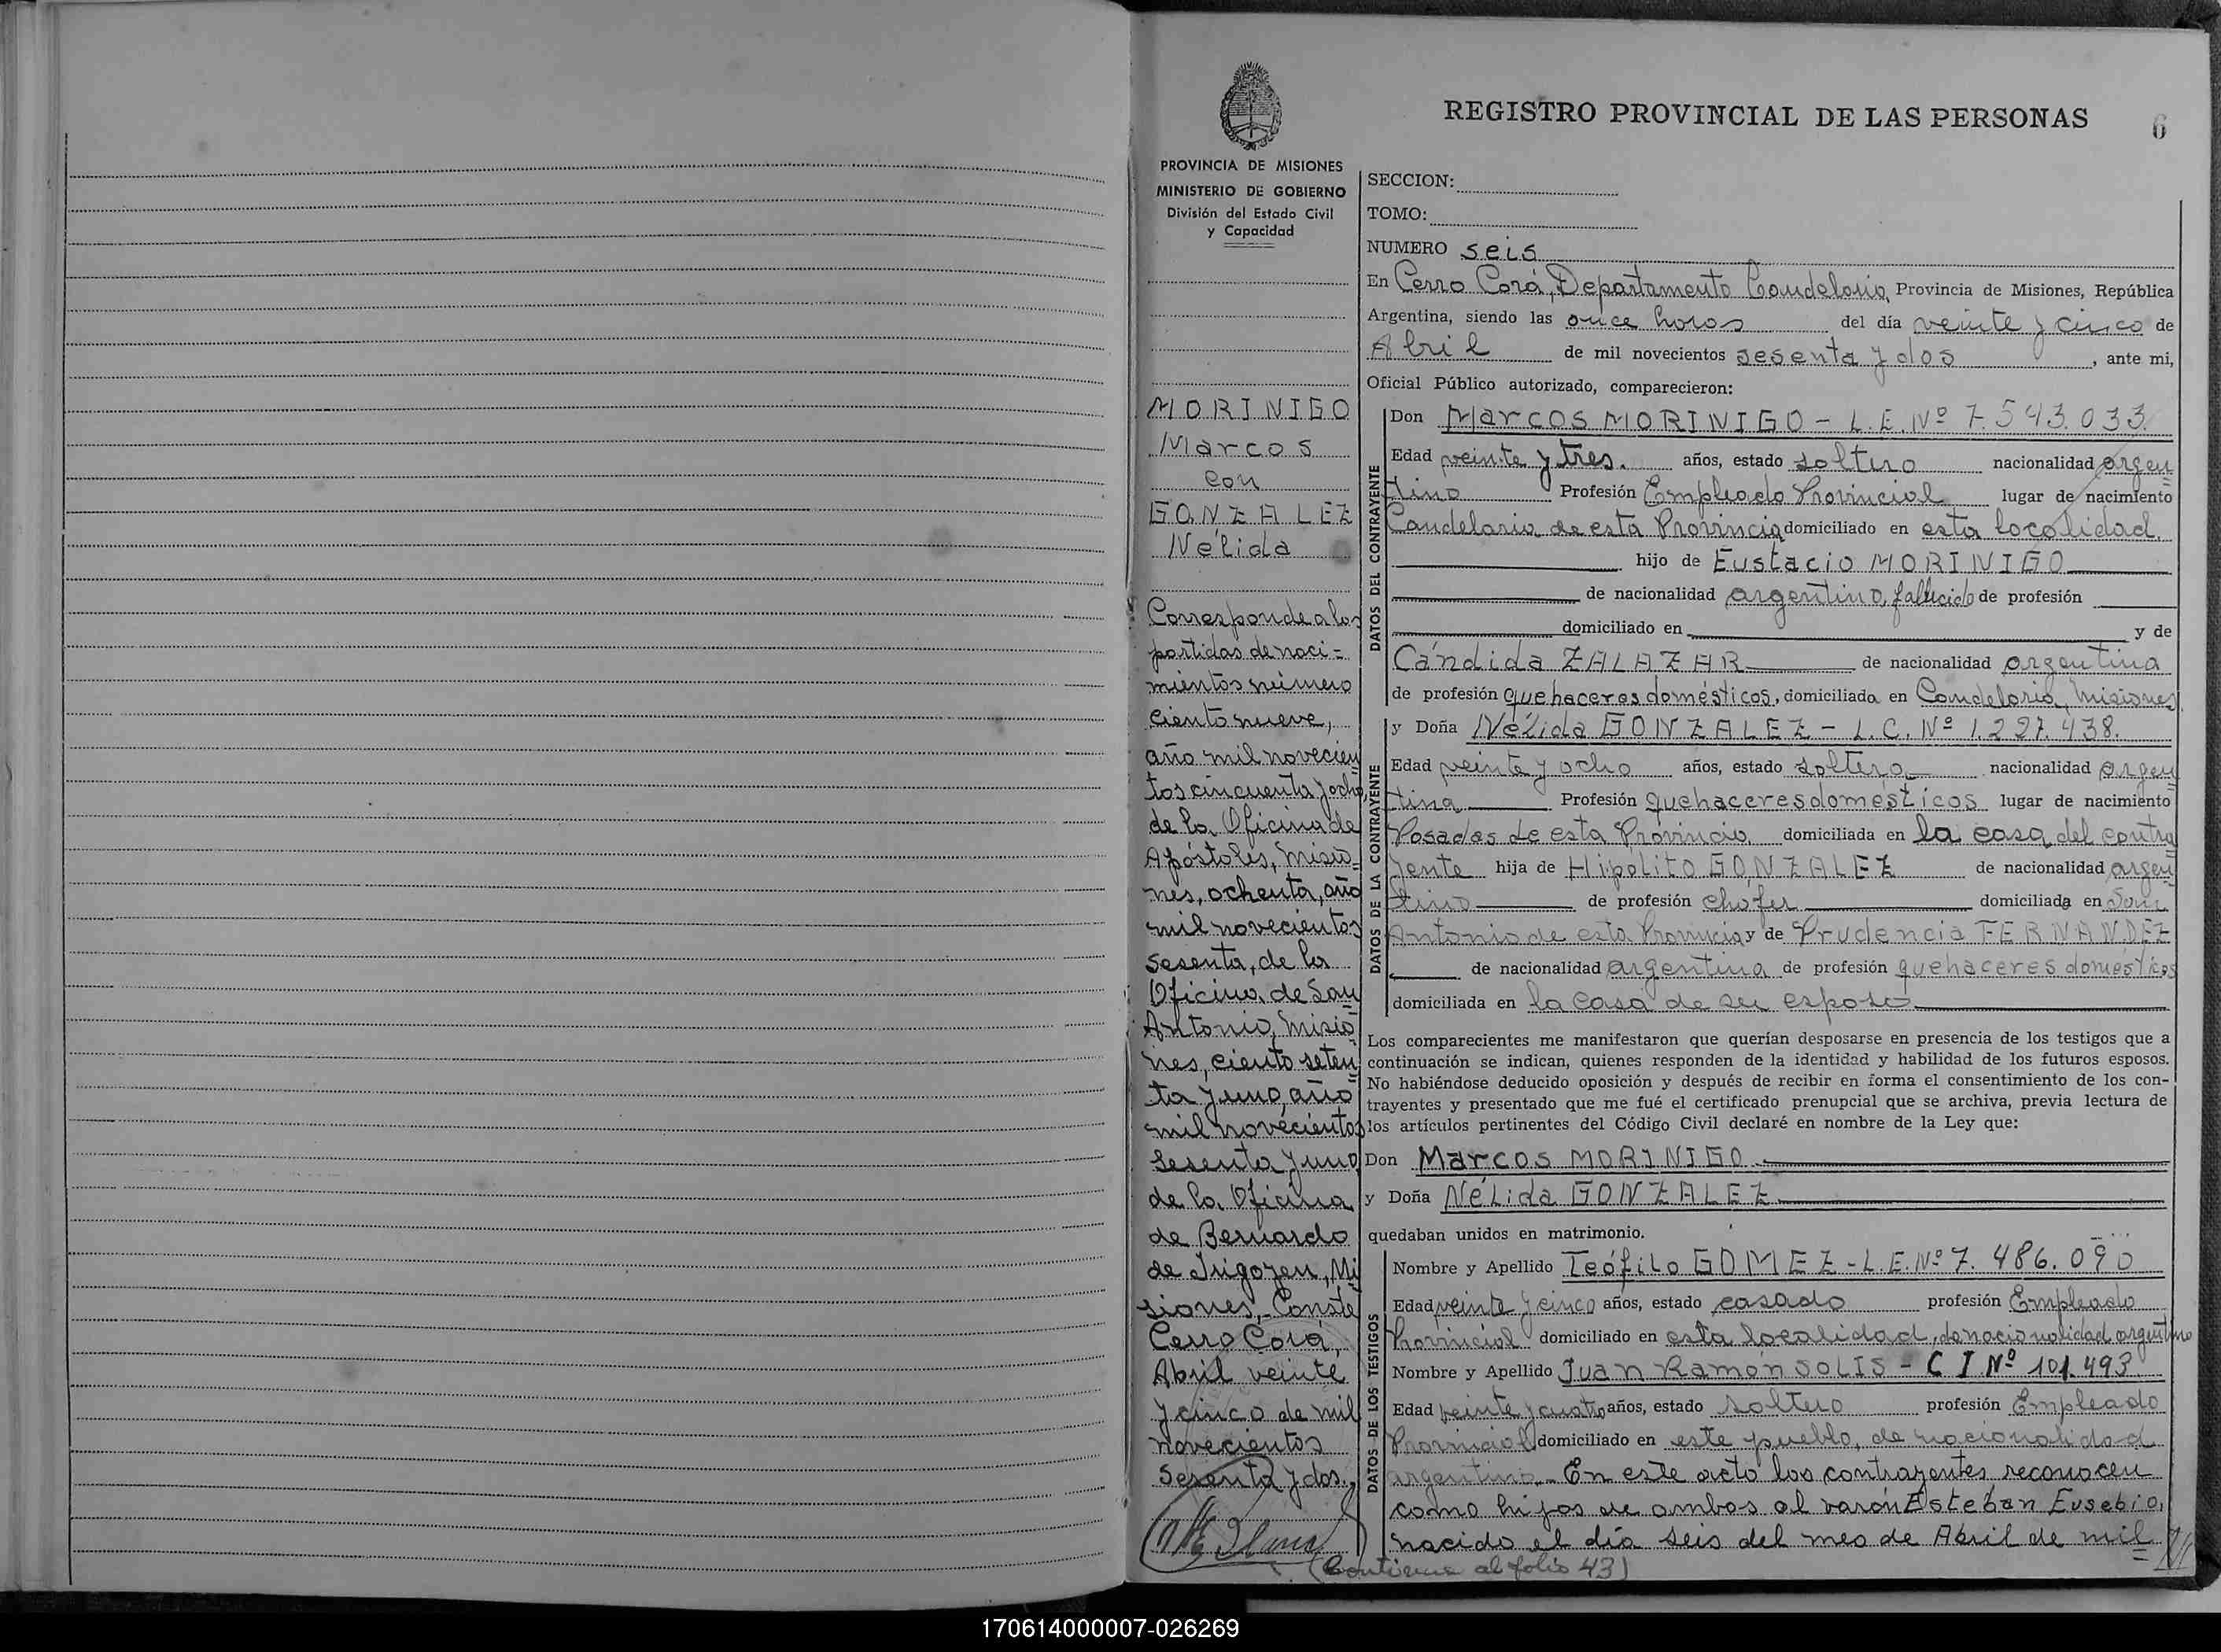 REGISTRO PROVINCIAL DE LAS PERSONAS
6
PROVINCIA DE MISIONES
MINISTERIO DE GOBIERNO
División del Estado Civil
y Capacidad
MORINIGO
Marcos
con
GONZALEZ
Nélida
Corresponde a las
partidas de naci=
mientos número
ciento nueve,
año mil novecien
tos cincuenta y ocho,
de la Oficina de
Apóstoles, Misio=
nes, ochenta, año
mil novecientos
sesenta, de la
Oficina de San
Antonio, Misio
nes, ciento seten
ta y uno, año
mil novecientos
sesenta y uno
de la Oficina
de Bernardo
de Irigoyen, Mi
siones,- Conste
Cerro Corá,
Abril veinte
y cinco de mil
novecientos
sesenta y dos.
SECCION:
TOMO:
NUMERO seis
En Cerro Corá, Departamento Candelaria, Provincia de Misiones, República
Argentina, siendo las once horas del día veinte y cinco de
Abril de mil novecientos sesenta y dos, ante mi,
Oficial Público autorizado, comparecieron:
DATOS DEL CONTRAYENTE
Don Marcos MORINIGO - L.E. Nº 7.543.033.
Edad veinte y tres. años, estado soltero nacionalidad argen
tino Profesión Empleado Provincial lugar de nacimiento
Candelaria de esta Provincia domiciliado en esta localidad.
hijo de Eustacio MORINIGO
de nacionalidad argentino, fallecido de profesión
domiciliado en y de
Cándida ZALAZAR de nacionalidad argentina
de profesión quehaceres domésticos, domiciliada en Candelaria, Misiones.
DATOS DE LA CONTRAYENTE
y Doña Nélida GONZALEZ - L.C. Nº 1.227.438.
Edad veinte y ocho años, estado soltera nacionalidad argen
tina Profesión quehaceres domésticos lugar de nacimiento
Posadas de esta Provincia domiciliada en la casa del contra
yente hija de Hipolito GONZALEZ de nacionalidad argen
tino de profesión chofer domiciliada en San
Antonio de esta Provincia y de Prudencia FERNANDEZ
de nacionalidad argentina de profesión quehaceres domésticos
domiciliada en la casa de su esposo
Los comparecientes me manifestaron que querían desposarse en presencia de los testigos que a
continuación se indican, quienes responden de la identidad y habilidad de los futuros esposos.
No habiéndose deducido oposición y después de recibir en forma el consentimiento de los con-
trayentes y presentado que me fué el certificado prenupcial que se archiva, previa lectura de
los artículos pertinentes del Código Civil declaré en nombre de la Ley que:
Don Marcos MORINIGO
y Doña Nélida GONZALEZ
quedaban unidos en matrimonio.
DATOS DE LOS TESTIGOS
Nombre y Apellido Teófilo GOMEZ - L.E. Nº 7.486.090
Edad veinte y cinco años, estado casado profesión Empleado
Provincial domiciliado en esta localidad, de nacionalidad argentino
Nombre y Apellido Juan Ramón SOLIS - C I Nº 101.493
Edad veinte y cuatro años, estado soltero profesión Empleado
Provincial domiciliado en este pueblo, de nacionalidad
argentino.- En este acto los contrayentes reconocen
como hijos de ambos al varón Esteban Eusebio,
nacido el día seis del mes de Abril de mil
(Continua al folio 43)
170614000007-026269